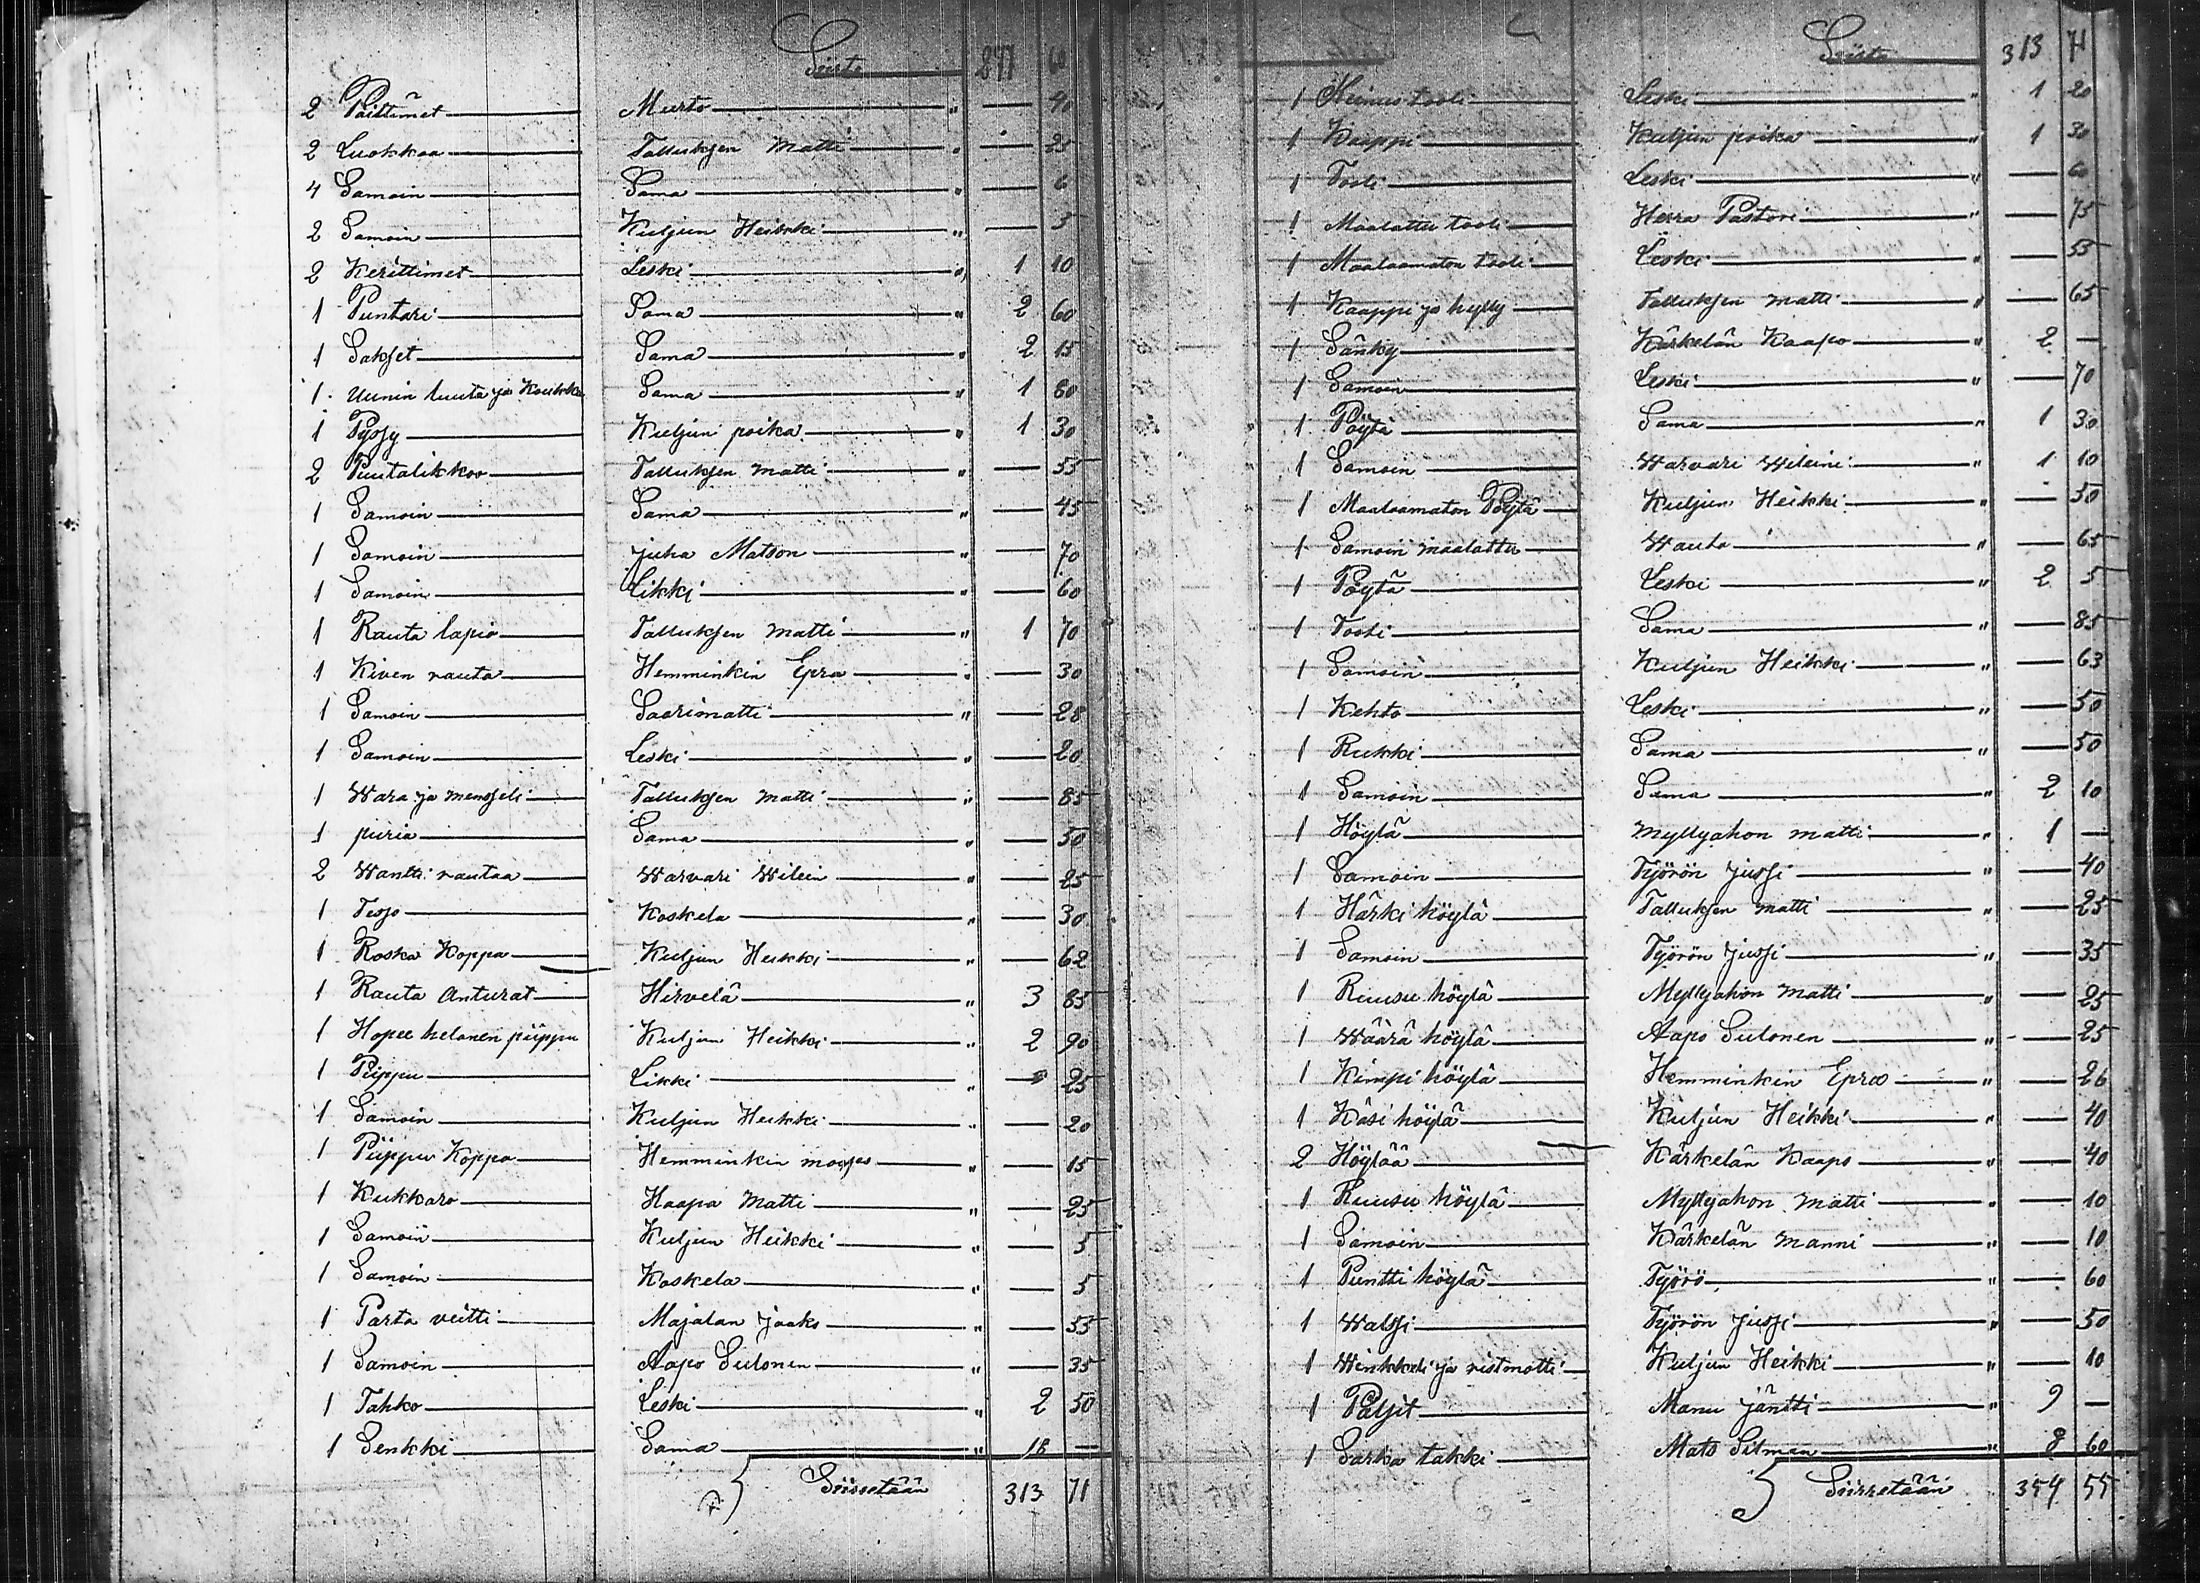 Siirto 271 60
2 Päittimet Murto " — 40
2 Luokkaa Talluksen Matti " — 25
4 Samoin Sama " — 6
2 Samoin Kuljun Heikki " — 5
2 Kerittimet Leski " 1 10
1 Puntari Sama " 2 60
1 Sakset Sama " 2 15
1 Uunin luuta ja Koukku Sama " 1 80
1 Pyssy Kuljun poika " 1 30
2 Puutalikkoo Talluksen Matti " — 55
1 Samoin Sama " — 45
1 Samoin Juha Matson " — 70
1 Samoin Likki " — 60
1 Rauta lapio Talluksen Matti " 1 70
1 Kiven rauta Hemminkin Epra " — 30
1 Samoin Saarimatti " — 28
1 Samoin Leski " — 20
1 Wara ja mensseli Talluksen Matti " — 85
1 puria Sama " — 50
2 Wantti rautaa Warvari Wilein " — 25
1 Tesso Koskela " — 30
1 Roska Koppa Kuljun Heikki " — 62
1 Rauta Anturat Hirvelä " 3 85
1 Hopee helanen piippu Kuljun Heikki " 2 90
1 Piippu Likki " — 25
1 Samoin Kuljun Heikki " — 20
1 Piippu Koppa Hemminkin " — 15
1 Kukkaro Haapa Matti " — 25
1 Samoin Kuljun Heikki " — 5
1 Samoin Koskela " — 5
1 Parta veitti Majalan Jaako " — 55
1 Samoin Aapo Sulonen " — 35
1 Tahko Leski " 2 50
1 Senkki Sama " 18 —
Siirretään 313 71
Siirto 313 71
1 tooli Leski " 1 20
1 Kaappi Kuljun poika " 1 30
1 Tooli Leski " — 60
1 Maalattu tooli Herra Pastori " — 75
1 Maalaamaton tooli Leski " — 55
1 Kaappi ja hylly Talluksen Matti " — 65
1 Sänky Kärkelän Kaapo " 2 —
1 Samoin Leski " — 70
1 Pöytä Sama " 1 30
1 Samoin Warvari Wileini " 1 10
1 Maalaamaton Pöytä Kuljun Heikki " — 50
1 Samoin maalattu Wauto " — 65
1 Pöytä Leski " 2 5
1 Tooli Sama " — 85
1 Samoin Kuljun Heikki " — 63
1 Kehto Leski " — 50
1 Rukki Sama " — 50
1 Samoin Sama " 2 10
1 Höylä Myllyahon Matti " 1 —
1 Samoin Työrön Jussi " — 40
1 Härki höylä Talluksen Matti " — 25
1 Samoin Työrön Jussi " — 35
1 Ruusu höylä Myllyahon Matti " — 25
1 Wäärä höylä Aapo Sulonen " — 25
1 Kimpi höylä Hemminkin Epra " — 26
1 Käsi höylä Kuljun Heikki " — 40
2 Höylää Kärkelän Kaapo " — 40
1 Ruusu höylä Myllyahon Matti " — 10
1 Samoin Kärkelän Manni " — 10
1 Puntti höylä Työrö " — 60
1 Walssi Työrön Jussi " — 50
1 Winkkeli ja ristmotti Kuljun Heikki " — 10
1 Paljit Manu Jäntti " 9 —
1 Sarka takki Mats Silman " 8 60
Siirretään 354 55